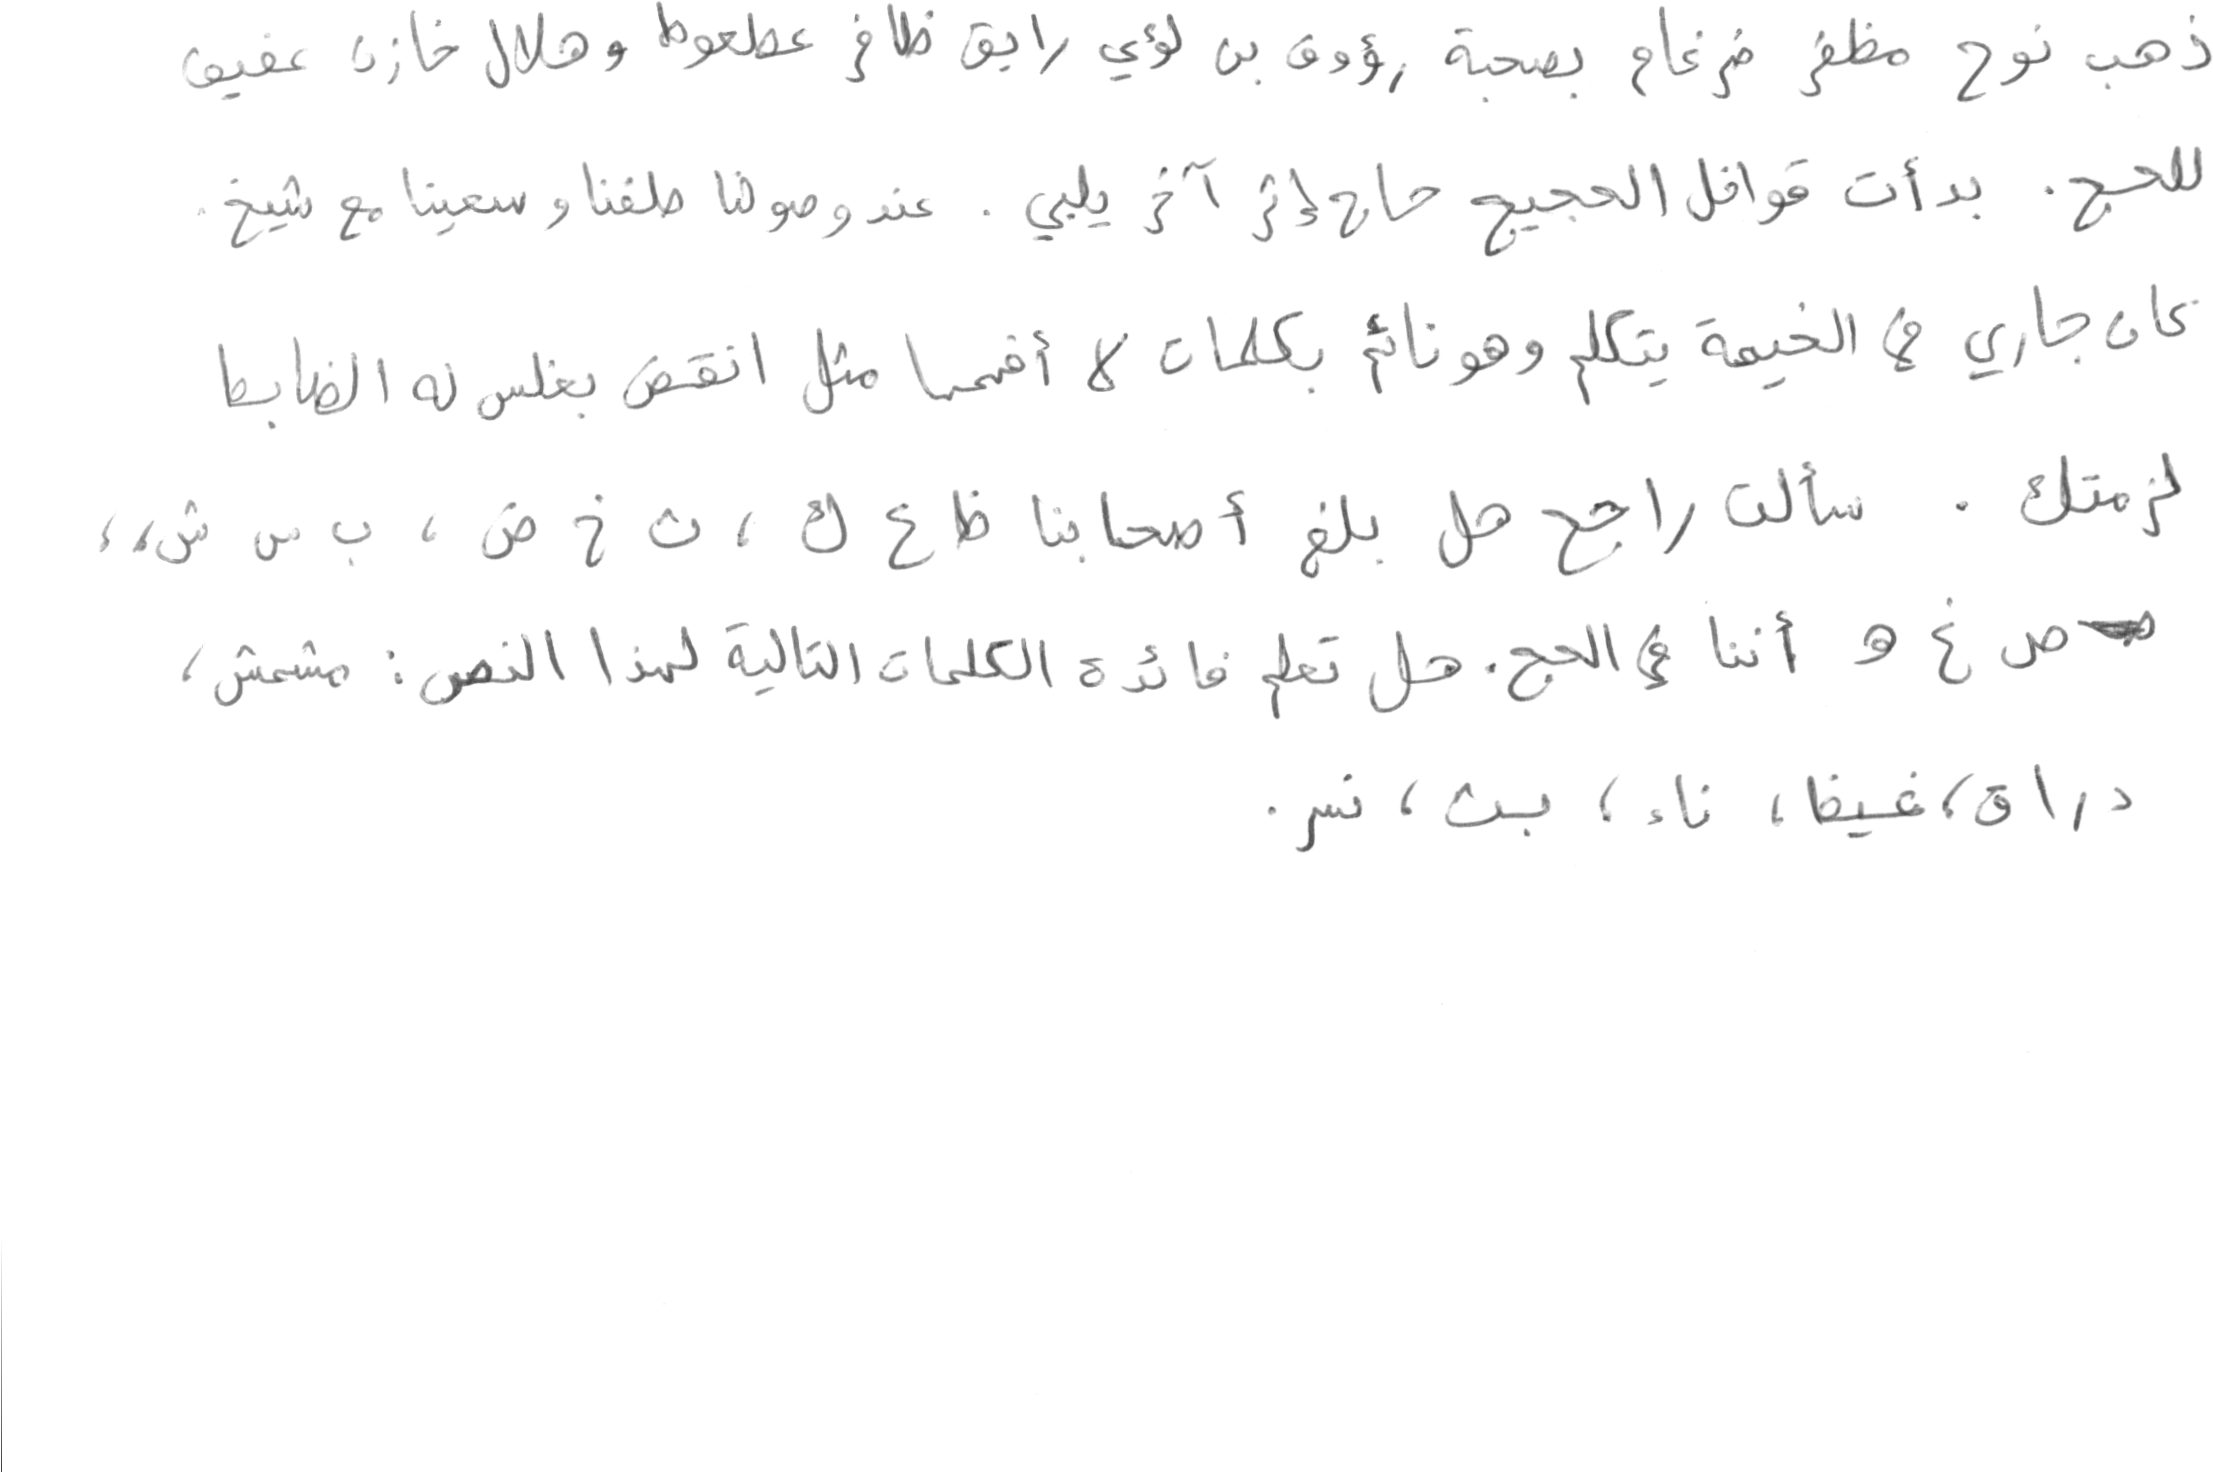 ذهب نوح مظفر ضرغام بصحبة رؤوف بن لؤي رايق ظافر عطعوط وهلال خازن عفيف
للحج. بدأت قوافل الحجيج حاج إثر آخر يلبي. عند وصولنا طفنا وسعينا مع شيخ.
كان جاري في الخيمة يتكلم وهو نائم بكلمات لا أفهمها مثل انقض بغلس له الضابط
لزمتك. سألت راجح هل بلغ أصحابنا ظ ع ك، ث خ ض، ب س ش،
ص غ ه أننا في الحج. هل تعلم فائدة الكلمات التالية لهذا النص: مشمش،
دراق، غيظ، ناء، بث، نسر.